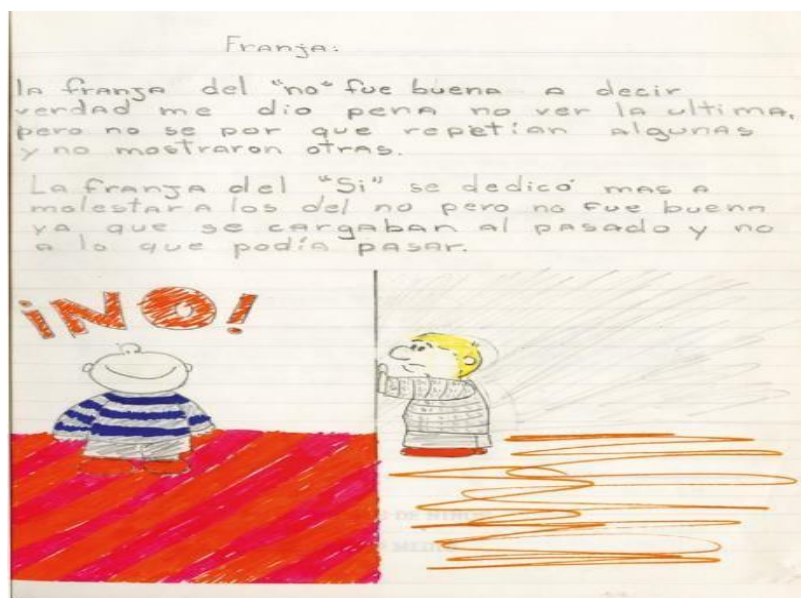 Franja:
la franja del "no" fue buena a decir
verdad me dio pena no ver la ultima,
pero no se por que repetían algunas
y no mostraron otras.
La franja del "Si" se dedicó mas a
molestar a los del no pero no fue buena
ya que se cargaban al pasado y no
a lo que podía pasar.
¡NO!